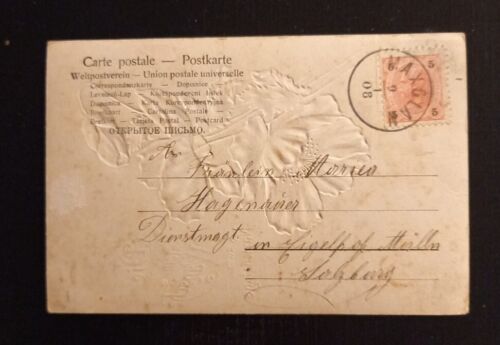 Carte postale — Postkarte
Weltpostverein – Union postale universelle
Correspondenzkarte – Dopisnice –
Levelező-Lap – Korrespondent listek
Dopisnica – Karta Korespondencyjna
Brefkort – Cartolina Postale –
– Tarjeta Postal – Postcard
ОТКРЫТОЕ ПИСЬМО.
5 5
MAXGLAN
08
5 5
An
Fräulein Maria
Hagenauer
Dienstmagt in
Salzburg